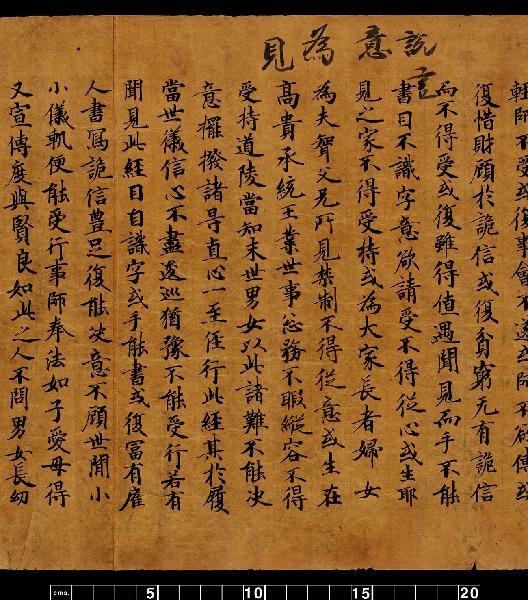 説意為見
輕師不受或復事會不遂或師不欲傳或
復惜財顧於詭信或復貧窮无有詭信
而不得受或復雖得值遇聞見而手不能
書目不識字意欲請受不得從心或生耶
見之家不得受持或為大家長者婦女
為夫聟父兄所見禁制不得從意或生在
高貴承統王業世事忩務不暇縱容不得
受持道陵當知末世男女以此諸難不能決
意擺撥諸㝵直心一至任行此經其於履
當世儀信心不盡逡巡猶豫不能受行若有
聞見此經目自識字或手能書或復冨有雇
人書寫詭信豊足復能決意不顧世間小
小儀軌便能受行事師奉法如子愛母得
又宣傳度與賢良如此之人不問男女長幼
cms. 5 10 15 20